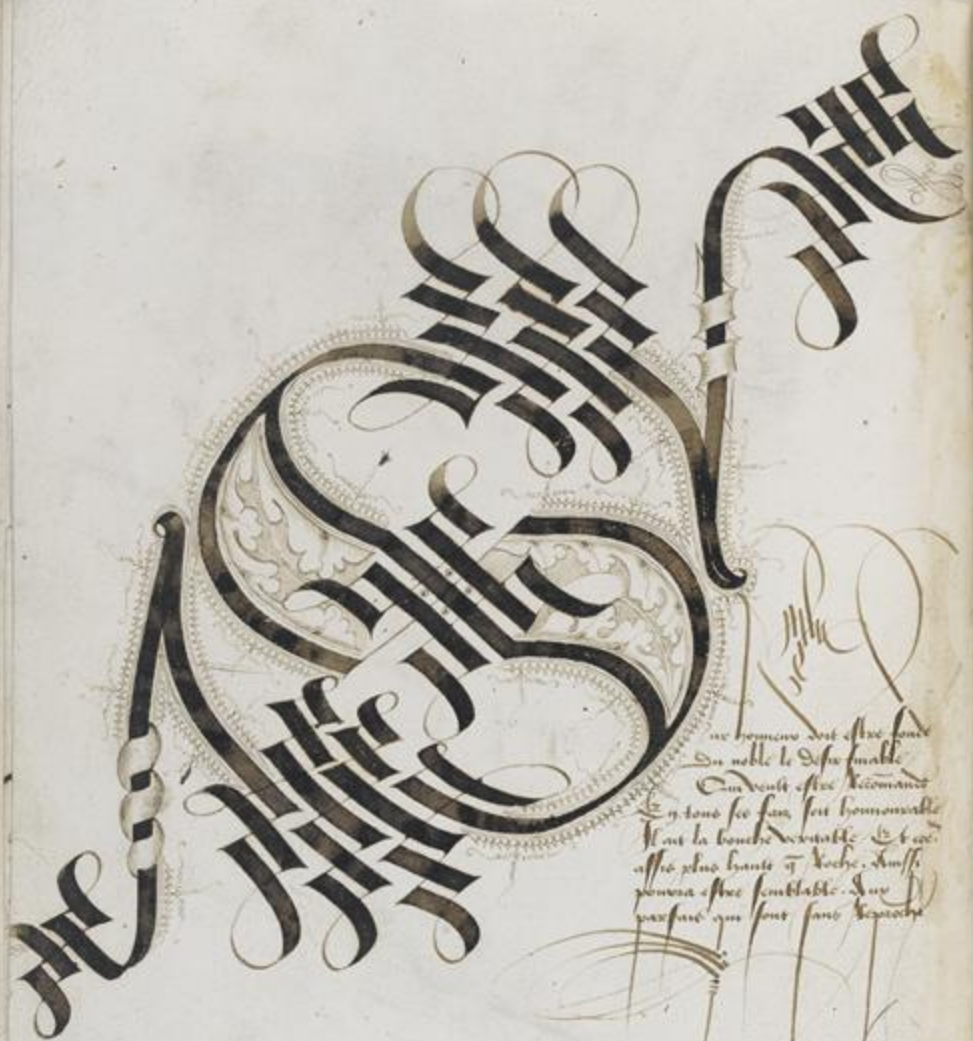 ur honneur doit estre fonde
Du noble le desir finable
Qui veult estre Recōmande
Et en tous ses fais soit honnourable
Il ait la bouche veritable Et
assis plus hault q̄ Roche. Ainssi
pourra estre semblable. Aux
parfais qui sont sans Reproche